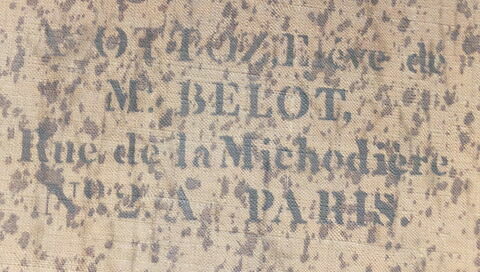 A OTTOZ Elève de
Mr. BELOT,
Rue de la Michodière
No. 2 A PARIS